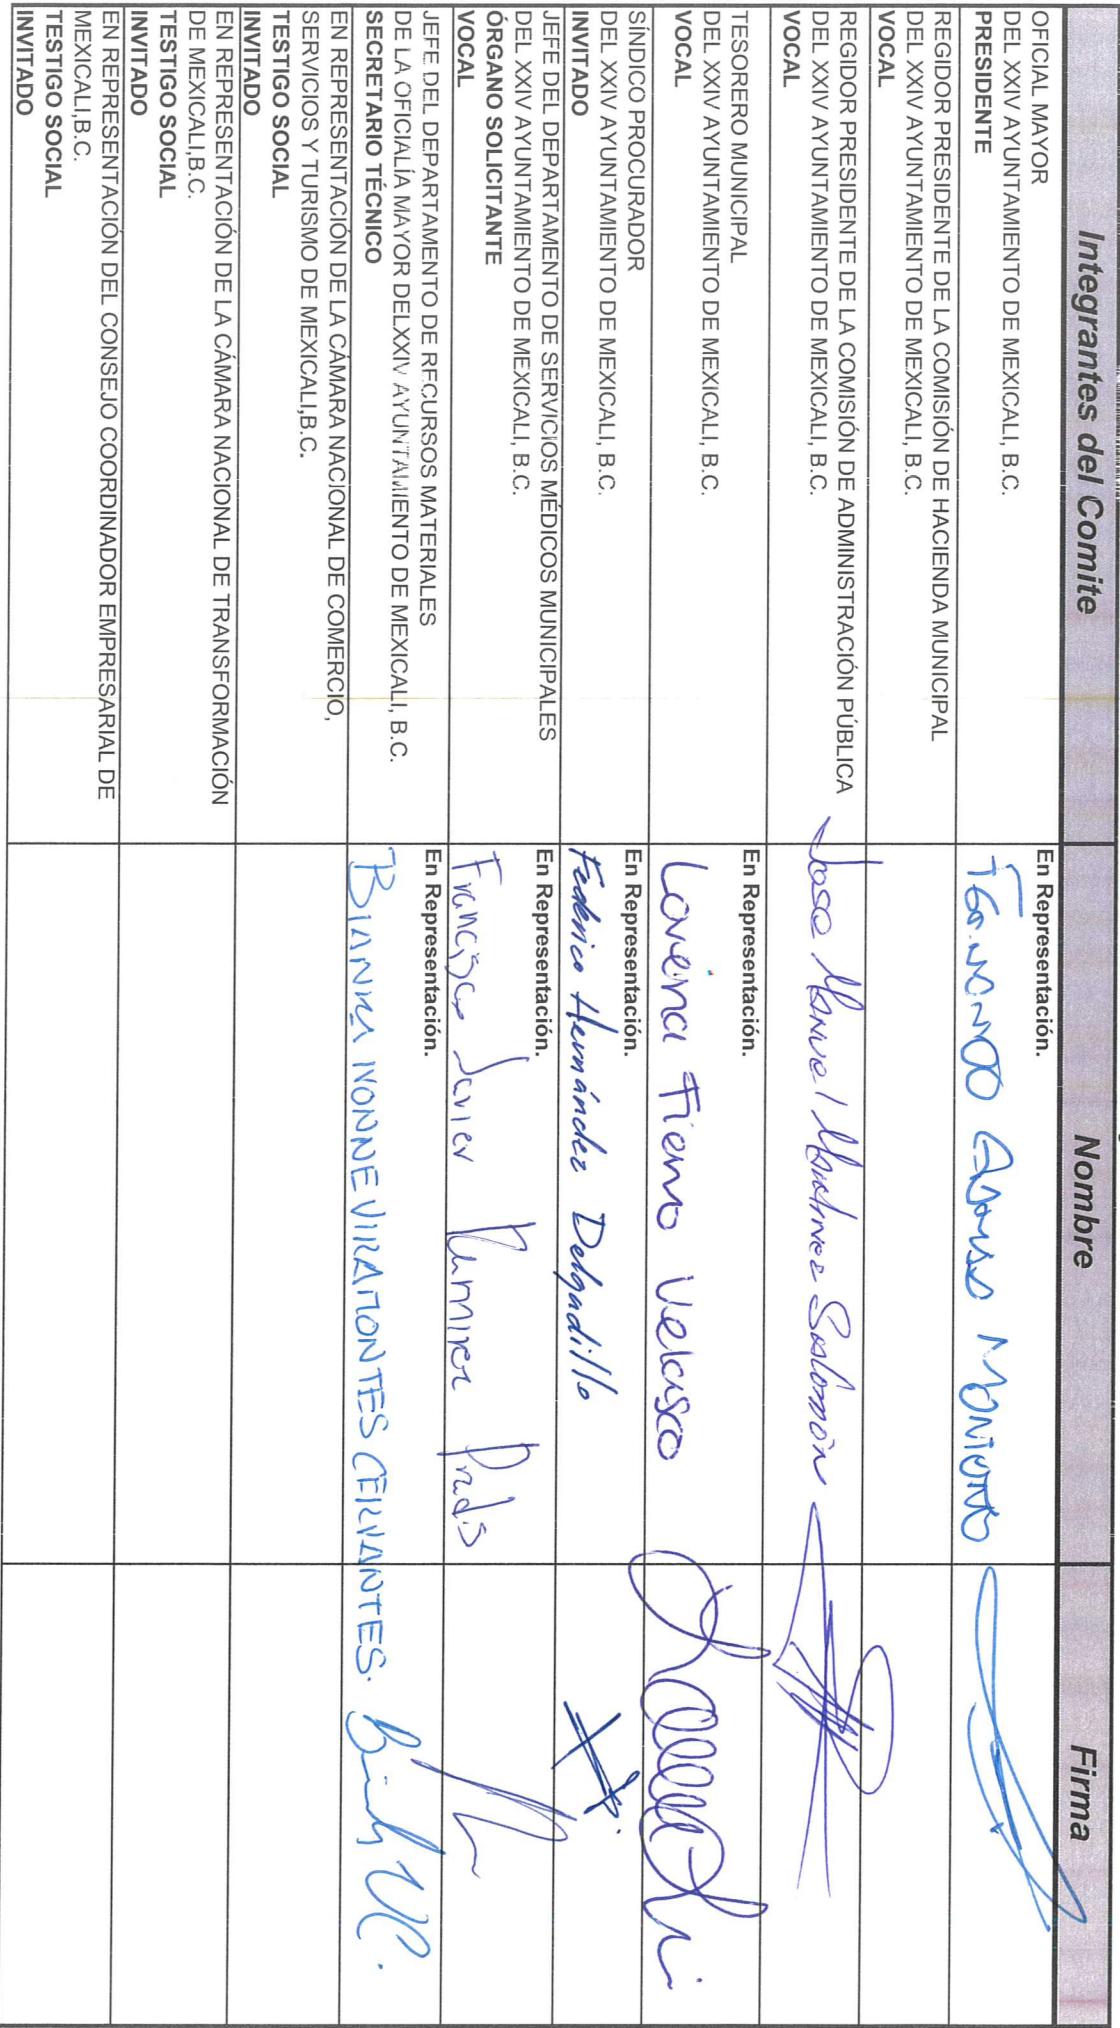 Integrantes del Comite
Nombre
Firma
OFICIAL MAYOR
DEL XXIV AYUNTAMIENTO DE MEXICALI, B.C.
PRESIDENTE
En Representación.
REGIDOR PRESIDENTE DE LA COMISIÓN DE HACIENDA MUNICIPAL
DEL XXIV AYUNTAMIENTO DE MEXICALI, B.C.
VOCAL
REGIDOR PRESIDENTE DE LA COMISIÓN DE ADMINISTRACIÓN PÚBLICA
DEL XXIV AYUNTAMIENTO DE MEXICALI, B.C.
VOCAL
Jose Manuel Martinez Salomón
TESORERO MUNICIPAL
DEL XXIV AYUNTAMIENTO DE MEXICALI, B.C.
VOCAL
En Representación.
Lorena Fierro Velasco
SÍNDICO PROCURADOR
DEL XXIV AYUNTAMIENTO DE MEXICALI, B.C.
INVITADO
En Representación.
Federico Hernández Delgadillo
JEFE DEL DEPARTAMENTO DE SERVICIOS MÉDICOS MUNICIPALES
DEL XXIV AYUNTAMIENTO DE MEXICALI, B.C.
ÓRGANO SOLICITANTE
VOCAL
En Representación.
Francisco Javier Ramirez Prado
JEFE DEL DEPARTAMENTO DE RECURSOS MATERIALES
DE LA OFICIALÍA MAYOR DELXXIV AYUNTAMIENTO DE MEXICALI, B.C.
SECRETARIO TÉCNICO
En Representación.
VIRAMONTES CERVANTES.
EN REPRESENTACIÓN DE LA CÁMARA NACIONAL DE COMERCIO,
SERVICIOS Y TURISMO DE MEXICALI,B.C.
TESTIGO SOCIAL
INVITADO
EN REPRESENTACIÓN DE LA CÁMARA NACIONAL DE TRANSFORMACIÓN
DE MEXICALI,B.C.
TESTIGO SOCIAL
INVITADO
EN REPRESENTACIÓN DEL CONSEJO COORDINADOR EMPRESARIAL DE
MEXICALI,B.C.
TESTIGO SOCIAL
INVITADO